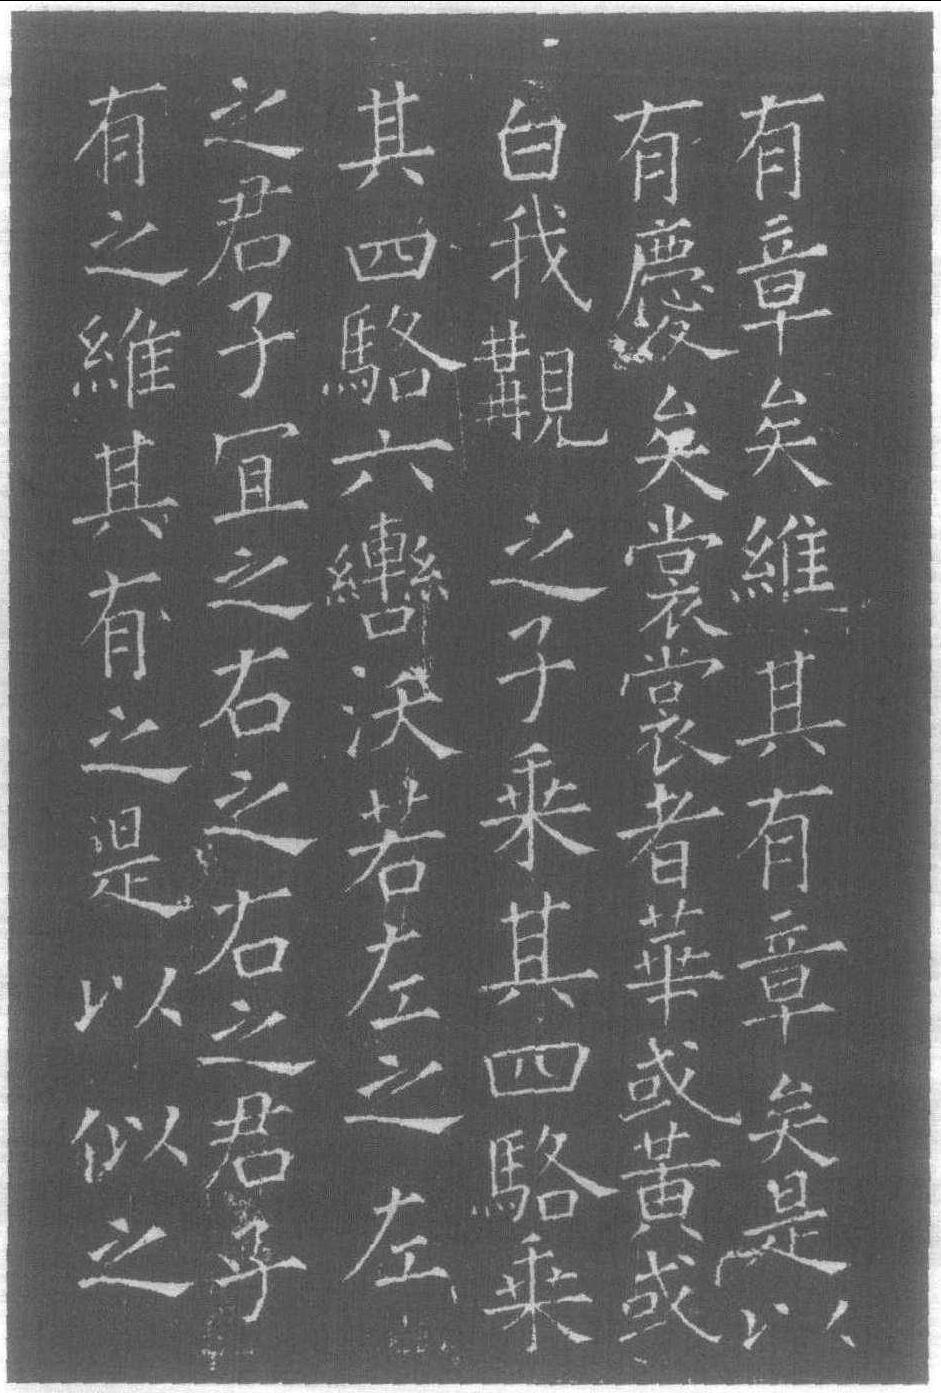 有章矣維其有章矣是以
有慶矣裳裳者華或黃或
白我覯之子乘其四駱乘
其四駱六轡沃若左之左
之君子宜之右之右之君子
有之維其有之是以似之